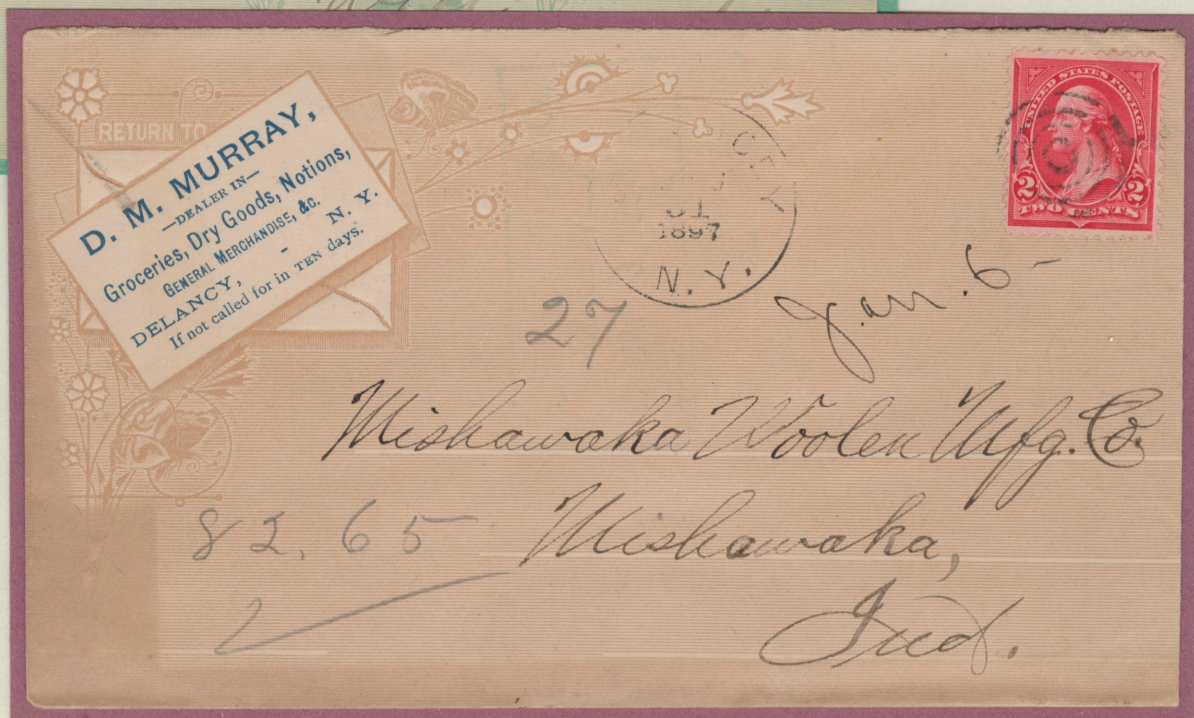 RETURN TO
D. M. MURRAY,
—DEALER IN—
Groceries, Dry Goods, Notions,
GENERAL MERCHANDISE, &C.
DELANCY, - N. Y.
If not called for in TEN days.
31
1897
N. Y.
UNITED STATES POSTAGE
2 2
TWO CENTS
Jan. 6 -
27
Mishawaka Woolen Mfg. Co.
82.65
Mishawaka,
Ind.